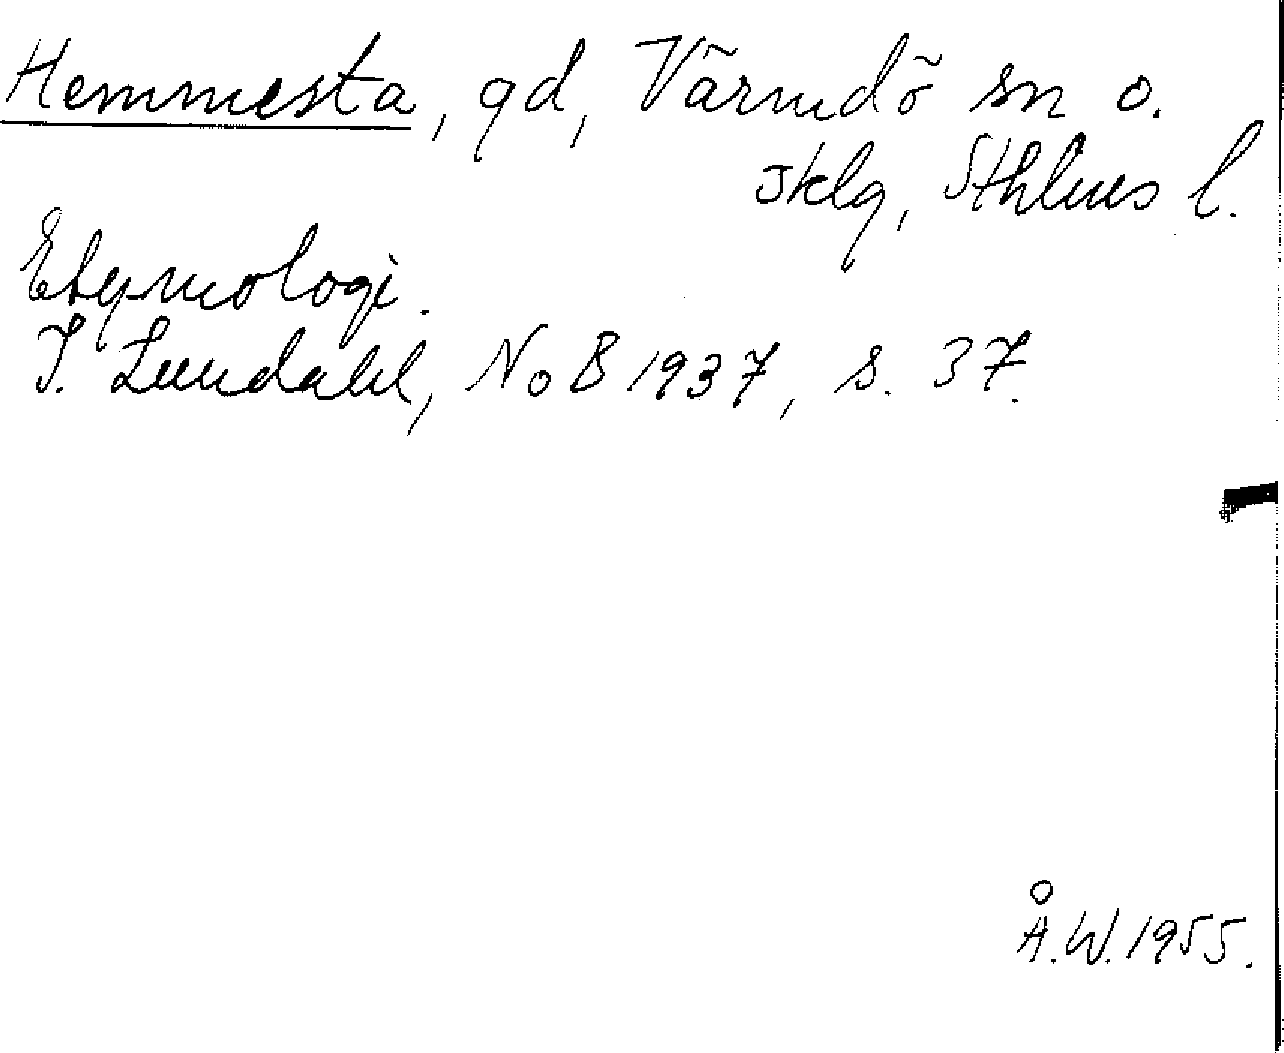 Hemmesta, gd, Värmdö sn o.
sklg, Sthlms l.
Etymologi.
I. Lundahl, NoB 1937, s. 37.
Å.W. 1955.